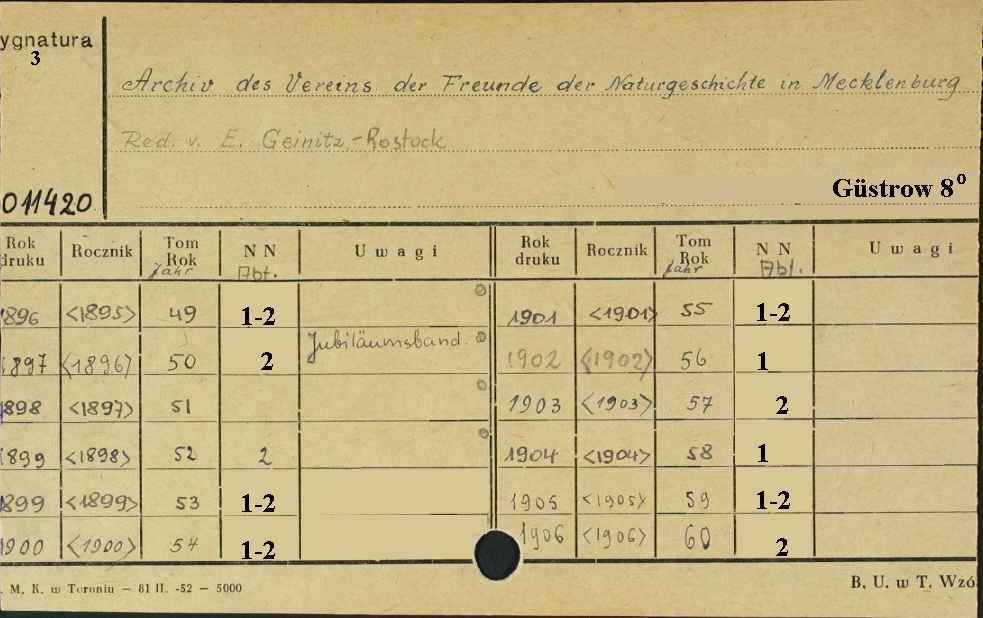 ygnatura
3
Archiv des Vereins der Freunde der Naturgeschichte in Mecklenburg
Red. v. E. Geinitz.-Rostock
Güstrow 8º
011420
Rok druku Rocznik Tom Rok Jahr N N Abt. Uwagi Rok druku Rocznik Tom Rok Jahr N N Abt. Uwagi
1896 <1895> 49 1-2 1901 <1901> 55 1-2
1897 <1896> 50 2 Jubiläumsband. 1902 <1902> 56 1
1898 <1897> 51 1903 <1903> 57 2
1899 <1898> 52 2 1904 <1904> 58 1
1899 <1899> 53 1-2 1905 <1905> 59 1-2
1900 <1900> 54 1-2 1906 <1906> 60 2
. M. K. w Toruniu — 81 II. -52 — 5000
B. U. w T. Wzó